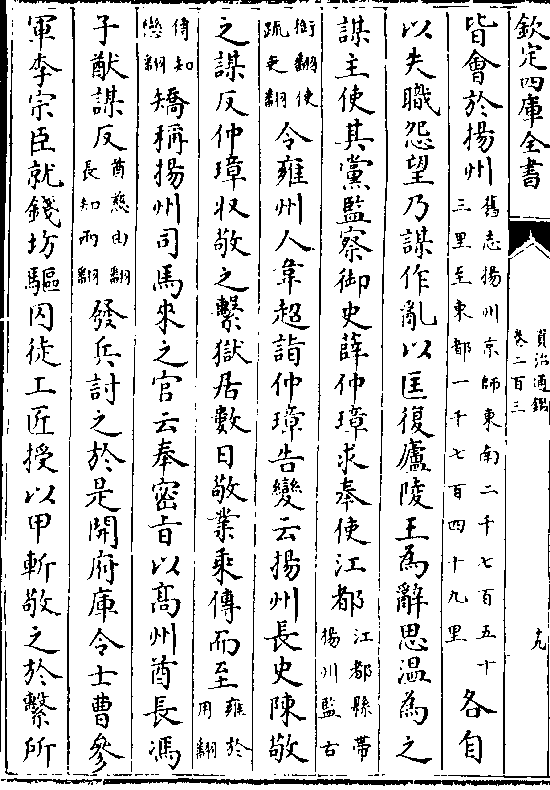 欽定四庫全書
資治通鑑
卷二百三
九
皆會於揚州舊志揚州京師東南二千七百五十三里至東都一千七百四十九里各自
以失職怨望乃謀作亂以匡復廬陵王為辭思温為之
謀主使其黨監察御史薛仲璋求奉使江都江都縣帶揚州監古
銜翻使疏吏翻令雍州人韋超詣仲璋告變云揚州長史陳敬
之謀反仲璋収敬之繫獄居數日敬業乘傳而至雍於用翻
傳知戀翻矯稱揚州司馬來之官云奉密旨以髙州酋長馮
子猷謀反酋慈由翻長知兩翻發兵討之於是開府庫令士曹參
軍李宗臣就錢坊驅囚徒工匠授以甲斬敬之於繫所